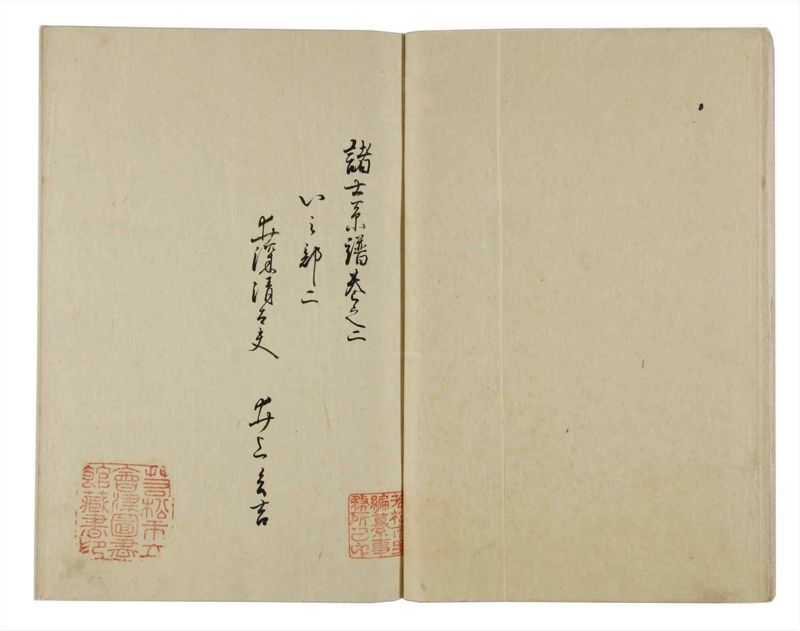 諸士系譜巻之二
い之部二
井深清太夫
井上
若松市立
會津圖書
館藏書印
若松市史
編纂事
務所之印